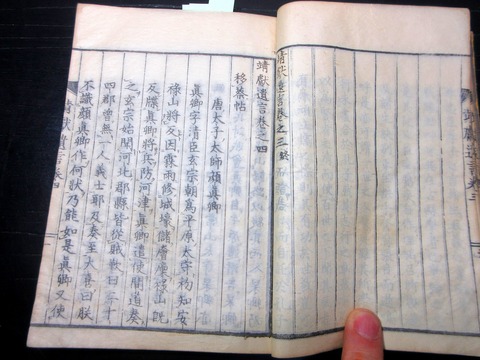 靖献遺言巻之三終
靖獻遺言巻之四
移蔡帖
唐太子太師顔真卿
真卿字清臣玄宗朝爲平原太守初知安
祿山將反因霖雨修城壕儲廥廩祿山既
反牒真卿將兵防河津真卿遣使間道奏
之玄宗始聞河北郡縣皆從賊歎曰二十
四郡曽無一人義士耶及奏至大喜曰朕
不識顔真卿作何狀乃能如是真卿又使
靖献遺言巻四
靖献遺言巻三